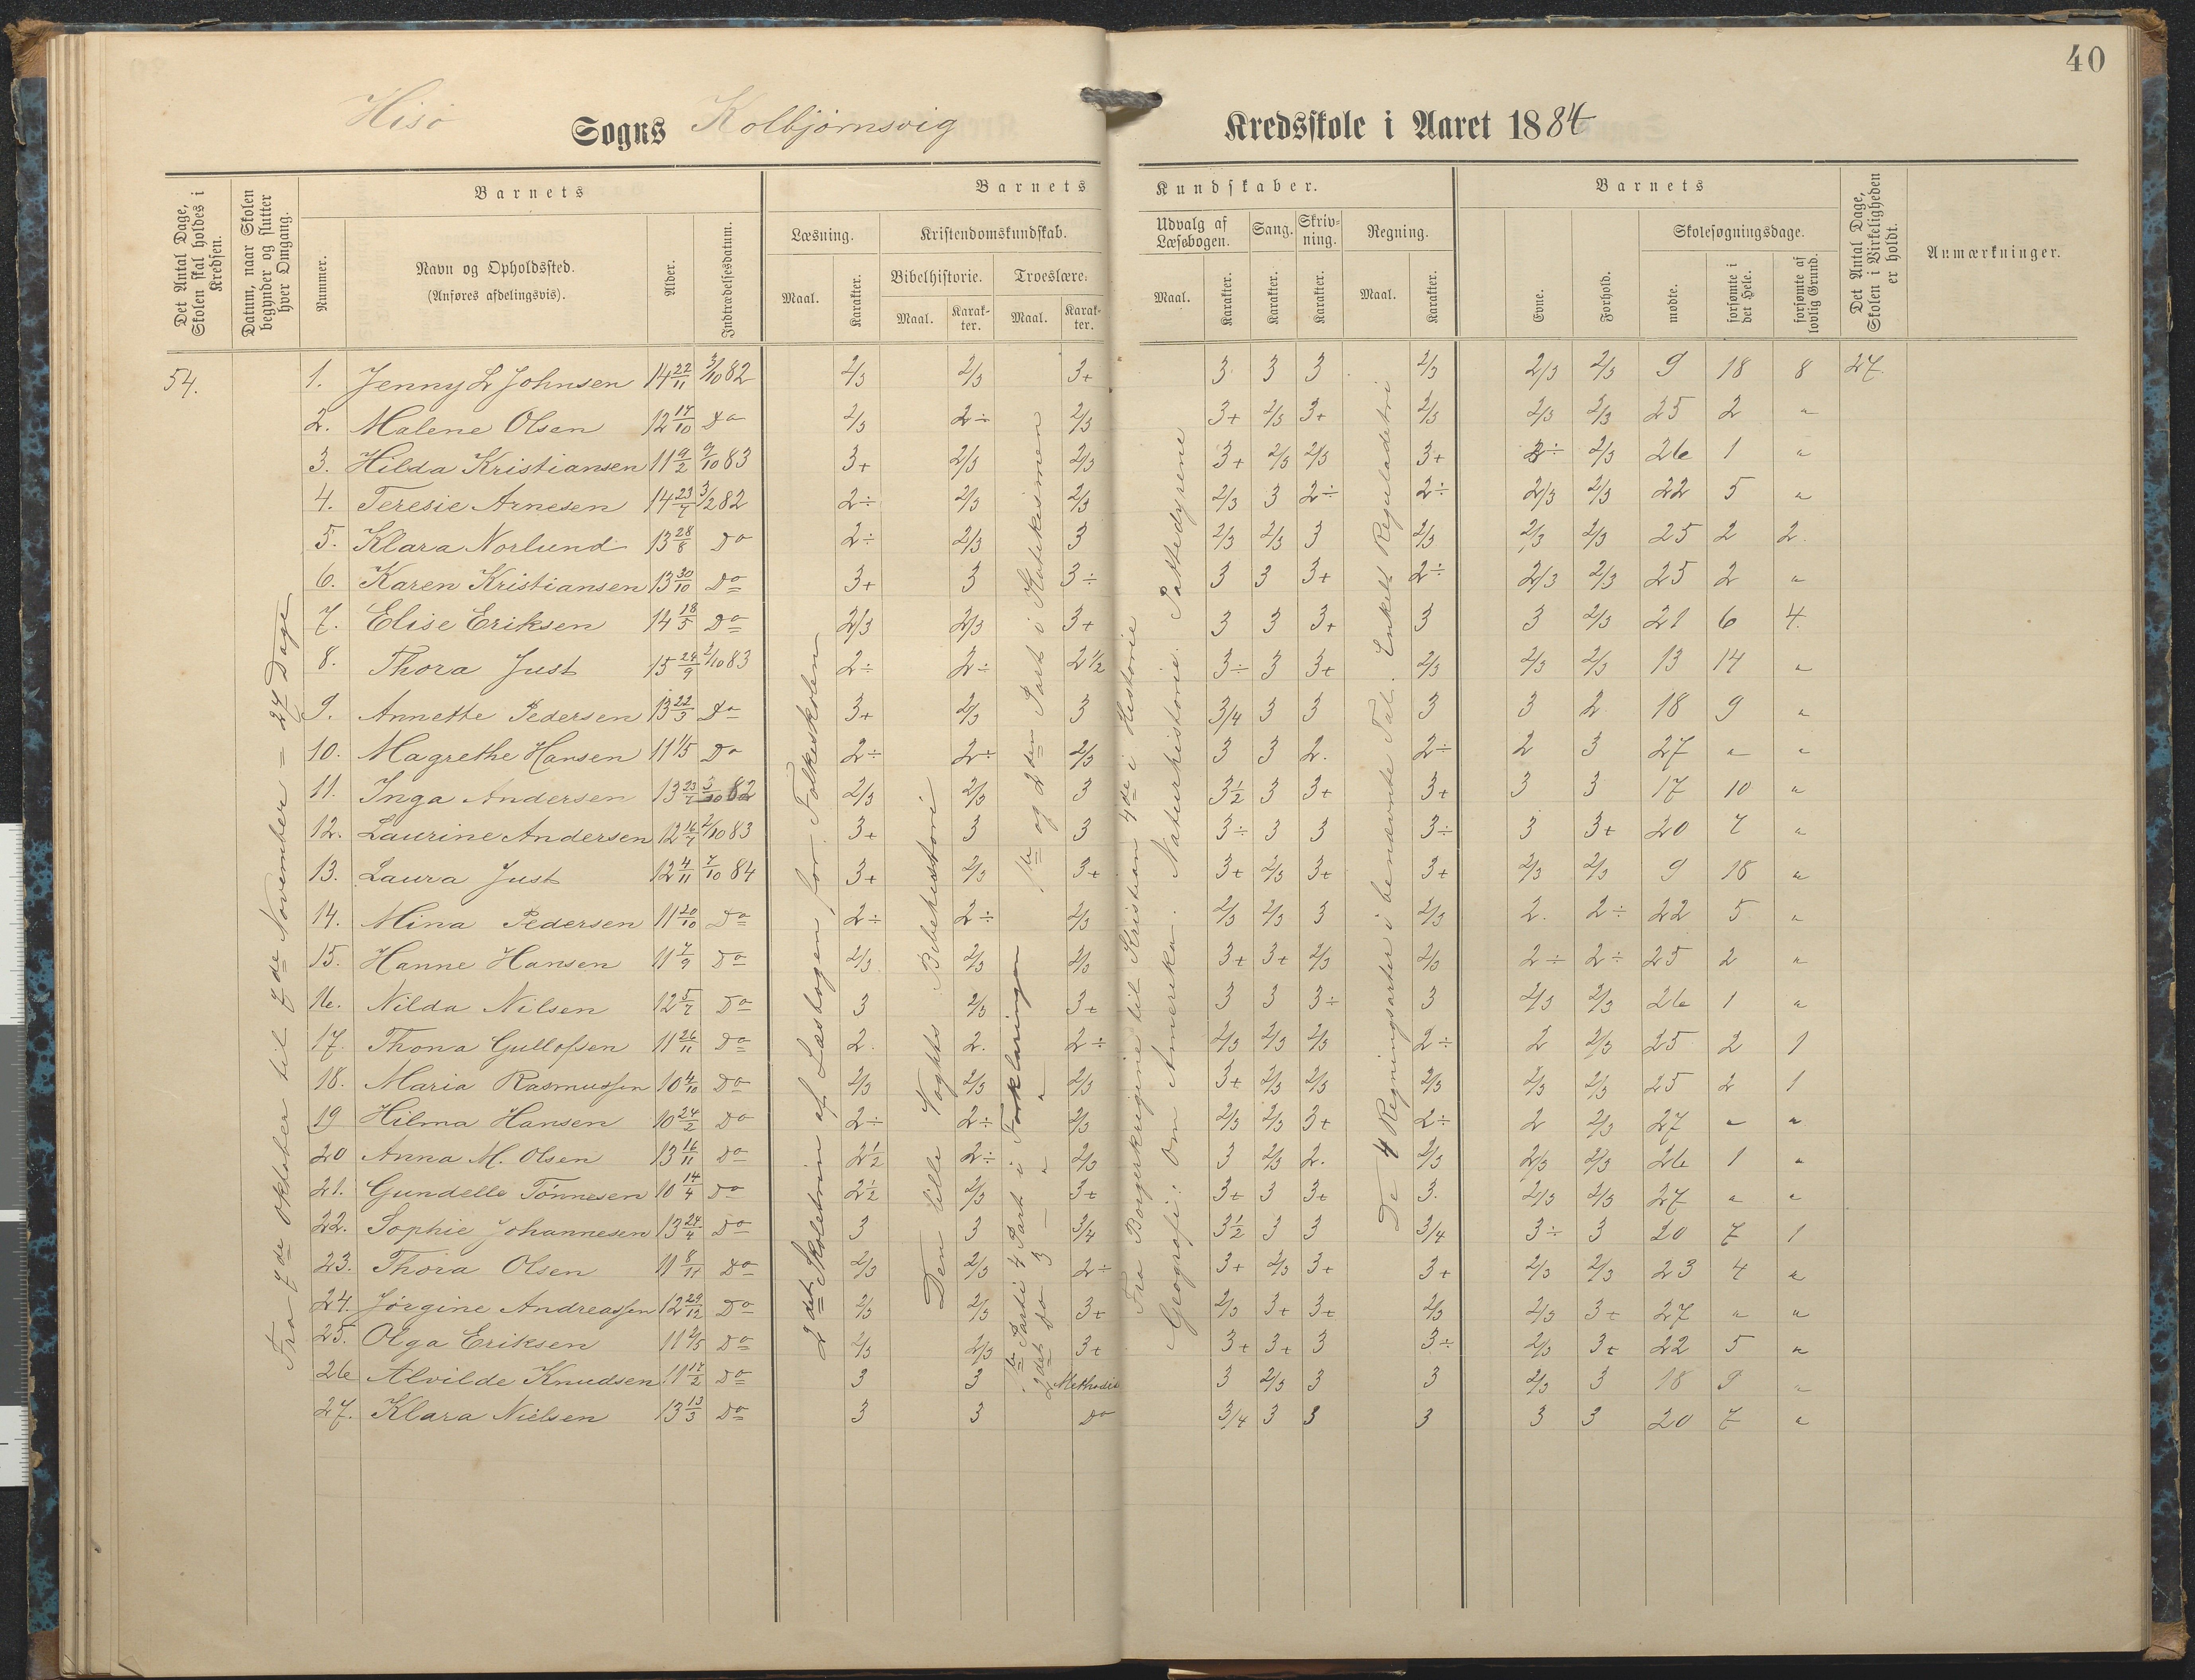 40
Hisø Sogns Kolbjørnsvig Kredsskole i Aaret 1884
Det Antal Dage, Skolen skal holdes i Kredsen.
Datum, naar Skolen begynder og slutter hver Omgang.
Barnets
Nummer.
Navn og Opholdssted.
(Anføres afdelingsvis).
Alder.
Indtrædelsesdatum.
Barnets Kundskaber.
Læsning.
Maal. Karakter.
Kristendomskundskab.
Bibelhistorie. Troeslære.
Maal. Karakter. Maal. Karakter.
Udvalg af Læsebogen.
Maal. Karakter.
Sang.
Karakter.
Skrivning.
Karakter.
Regning.
Maal. Karakter.
Barnets
Evne.
Forhold.
Skolesøgningsdage.
mødte.
forsømte i det Hele.
forsømte af lovlig Grund.
Det Antal Dage, Skolen i Virkeligheden er holdt.
Anmærkninger.
54.
Fra 7de Oktober til 7de November = 27 Dage
2det Skoletrin af Læsebogen for Folkeskolen
Den lille Vogts Bibelhistori
1te og 2den Part i Katekismen
1te Parti 4 Part i Forklaringen
2det do 3 — " — "
Fra Borgerkrigene til Kristian 4de i Historie
Geografi: Om Amerika. Naturhistorie. Pattedyrene
De 4 Regningsarter i benævnte Tal. Enkelt Reguladetri
1. Jenny L Johnsen 14 22/11 3/10 82 2/3 2/3 3+ 3 3 3 2/3 2/3 2/3 9 18 8 27.
2. Malene Olsen 12 17/10 Do 2/3 2÷ 2/3 3+ 2/3 3+ 2/3 2/3 2/3 25 2 "
3. Hilda Kristiansen 11 9/2 9/10 83 3+ 2/3 2/3 3+ 2/3 2/3 3+ 3÷ 2/3 26 1 "
4. Teresie Arnesen 14 23/7 3/2 82 2÷ 2/3 2/3 2/3 3 2÷ 2÷ 2/3 2/3 22 5 "
5. Klara Norlund 13 28/8 Do 2÷ 2/3 3 2/3 2/3 3 2/3 2/3 2/3 25 2 2.
6. Karen Kristiansen 13 30/10 Do 3+ 3 3÷ 3 3 3+ 2÷ 2/3 2/3 25 2 "
7. Elise Eriksen 14 18/5 Do 2/3 2/3 3+ 3 3 3+ 3 3 2/3 21 6 4.
8. Thora Just 15 24/9 2/10 83 2÷ 2÷ 2 1/2 3÷ 3 3+ 2/3 2/3 2/3 13 14 "
9. Annette Pedersen 13 22/3 Do 3+ 2/3 3 3/4 3 3 3 3 2. 18 9 "
10. Magrethe Hansen 11 1/5 Do 2÷ 2÷ 2/3 3 3 2. 2÷ 2 3 27 " "
11. Inga Andersen 13 23/7 5/10 82 2/3 2/3 3 3 1/2 3 3+ 3+ 3 3 17 10 "
12. Laurine Andersen 12 16/7 2/10 83 3+ 3 3 3÷ 3 3 3÷ 3 3+ 20 7 "
13. Laura Just 12 4/11 7/10 84 3+ 2/3 3+ 3+ 2/3 3+ 3+ 2/3 2/3 9 18 "
14. Mina Pedersen 11 20/10 Do 2÷ 2÷ 2/3 2/3 2/3 3 2/3 2. 2÷ 22 5 "
15. Hanne Hansen 11 7/9 Do 2/3 2/3 2/3 3+ 3+ 2/3 2/3 2÷ 2÷ 25 2 "
16. Nilda Nilsen 12 5/7 Do 3 2/3 3+ 3 3 3÷ 3 2/3 2/3 26 1 "
17. Thona Gullofsen 11 26/11 Do 2. 2. 2÷ 2/3 2/3 2/3 2÷ 2 2/3 25 2 1
18. Maria Rasmussen 10 4/10 Do 2/3 2/3 2/3 3+ 2/3 2/3 2/3 2/3 2/3 25 2 1
19 Hilma Hansen 10 24/2 Do 2÷ 2÷ 2/3 2/3 2/3 3+ 2÷ 2 2/3 27 " "
20 Anna M. Olsen 13 16/11 Do 2 1/2 2÷ 2/3 3 2/3 2. 2/3 2/3 2/3 26 1 "
21. Gundelle Tönnesen 10 14/4 Do 2 1/2 2/3 3+ 3+ 3 3+ 3. 2/3 2/3 27 " "
22. Sophie Johannesen 13 24/4 Do 3 3 3/4 3 1/2 3 3 3/4 3÷ 3 20 7 1
23. Thora Olsen 11 8/11 Do 2/3 2/3 2÷ 3+ 2/3 3+ 3+ 2/3 2/3 23 4 "
24. Jörgine Andreassen 12 29/12 Do 2/3 2/3 3+ 2/3 3+ 3+ 2/3 2/3 3+ 27 " "
25. Olga Eriksen 11 2/5 Do 2/3 2/3 3+ 3+ 3+ 3 3÷ 2/3 3+ 22 5 "
26 Alvilde Knudsen 11 17/2 Do 3 3 Methodist 3 2/3 3 3 2/3 3 18 9 "
27. Klara Nielsen 13 13/3 Do 3 3 Do 3/4 3 3 3 3 3 20 7 "